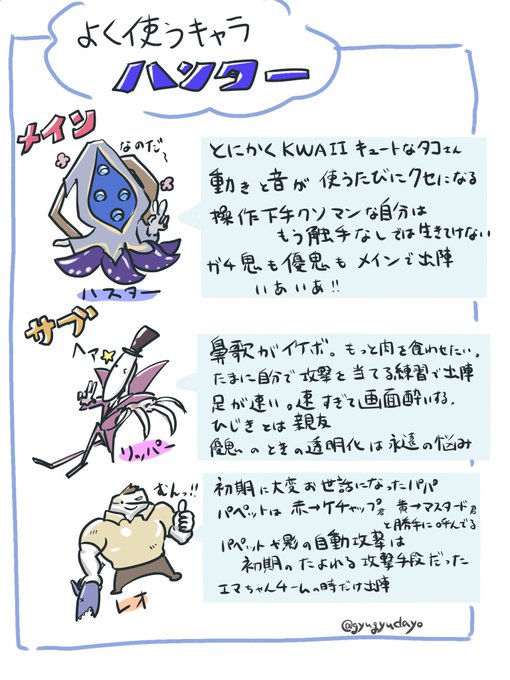 よく使うキャラ
ハンター
メイン
なのだ〜
ハスター
とにかくKWAIIキュートなタコさん
動きと音が使うたびにクセになる
操作下手クソマンな自分は
もう触手なしでは生きてけない
ガチ鬼も優鬼もメインで出陣
いあいあ!!
サブ
ヘァ
リッパー
鼻歌がイケボ。もっと肉を食わせたい。
たまに自分で攻撃を当てる練習で出陣
足が速い。速すぎて画面酔いする。
ひじきとは親友
優鬼のときの透明化は永遠の悩み
むんっ!!
レオ
初期に大変お世話になったパパ
パペットは赤→ケチャップ君 黄→マスタード君
と勝手に呼んでる
パペットや影の自動攻撃は
初期のたよれる攻撃手段だった
エマちゃんチームの時だけ出陣
@gyugyudayo